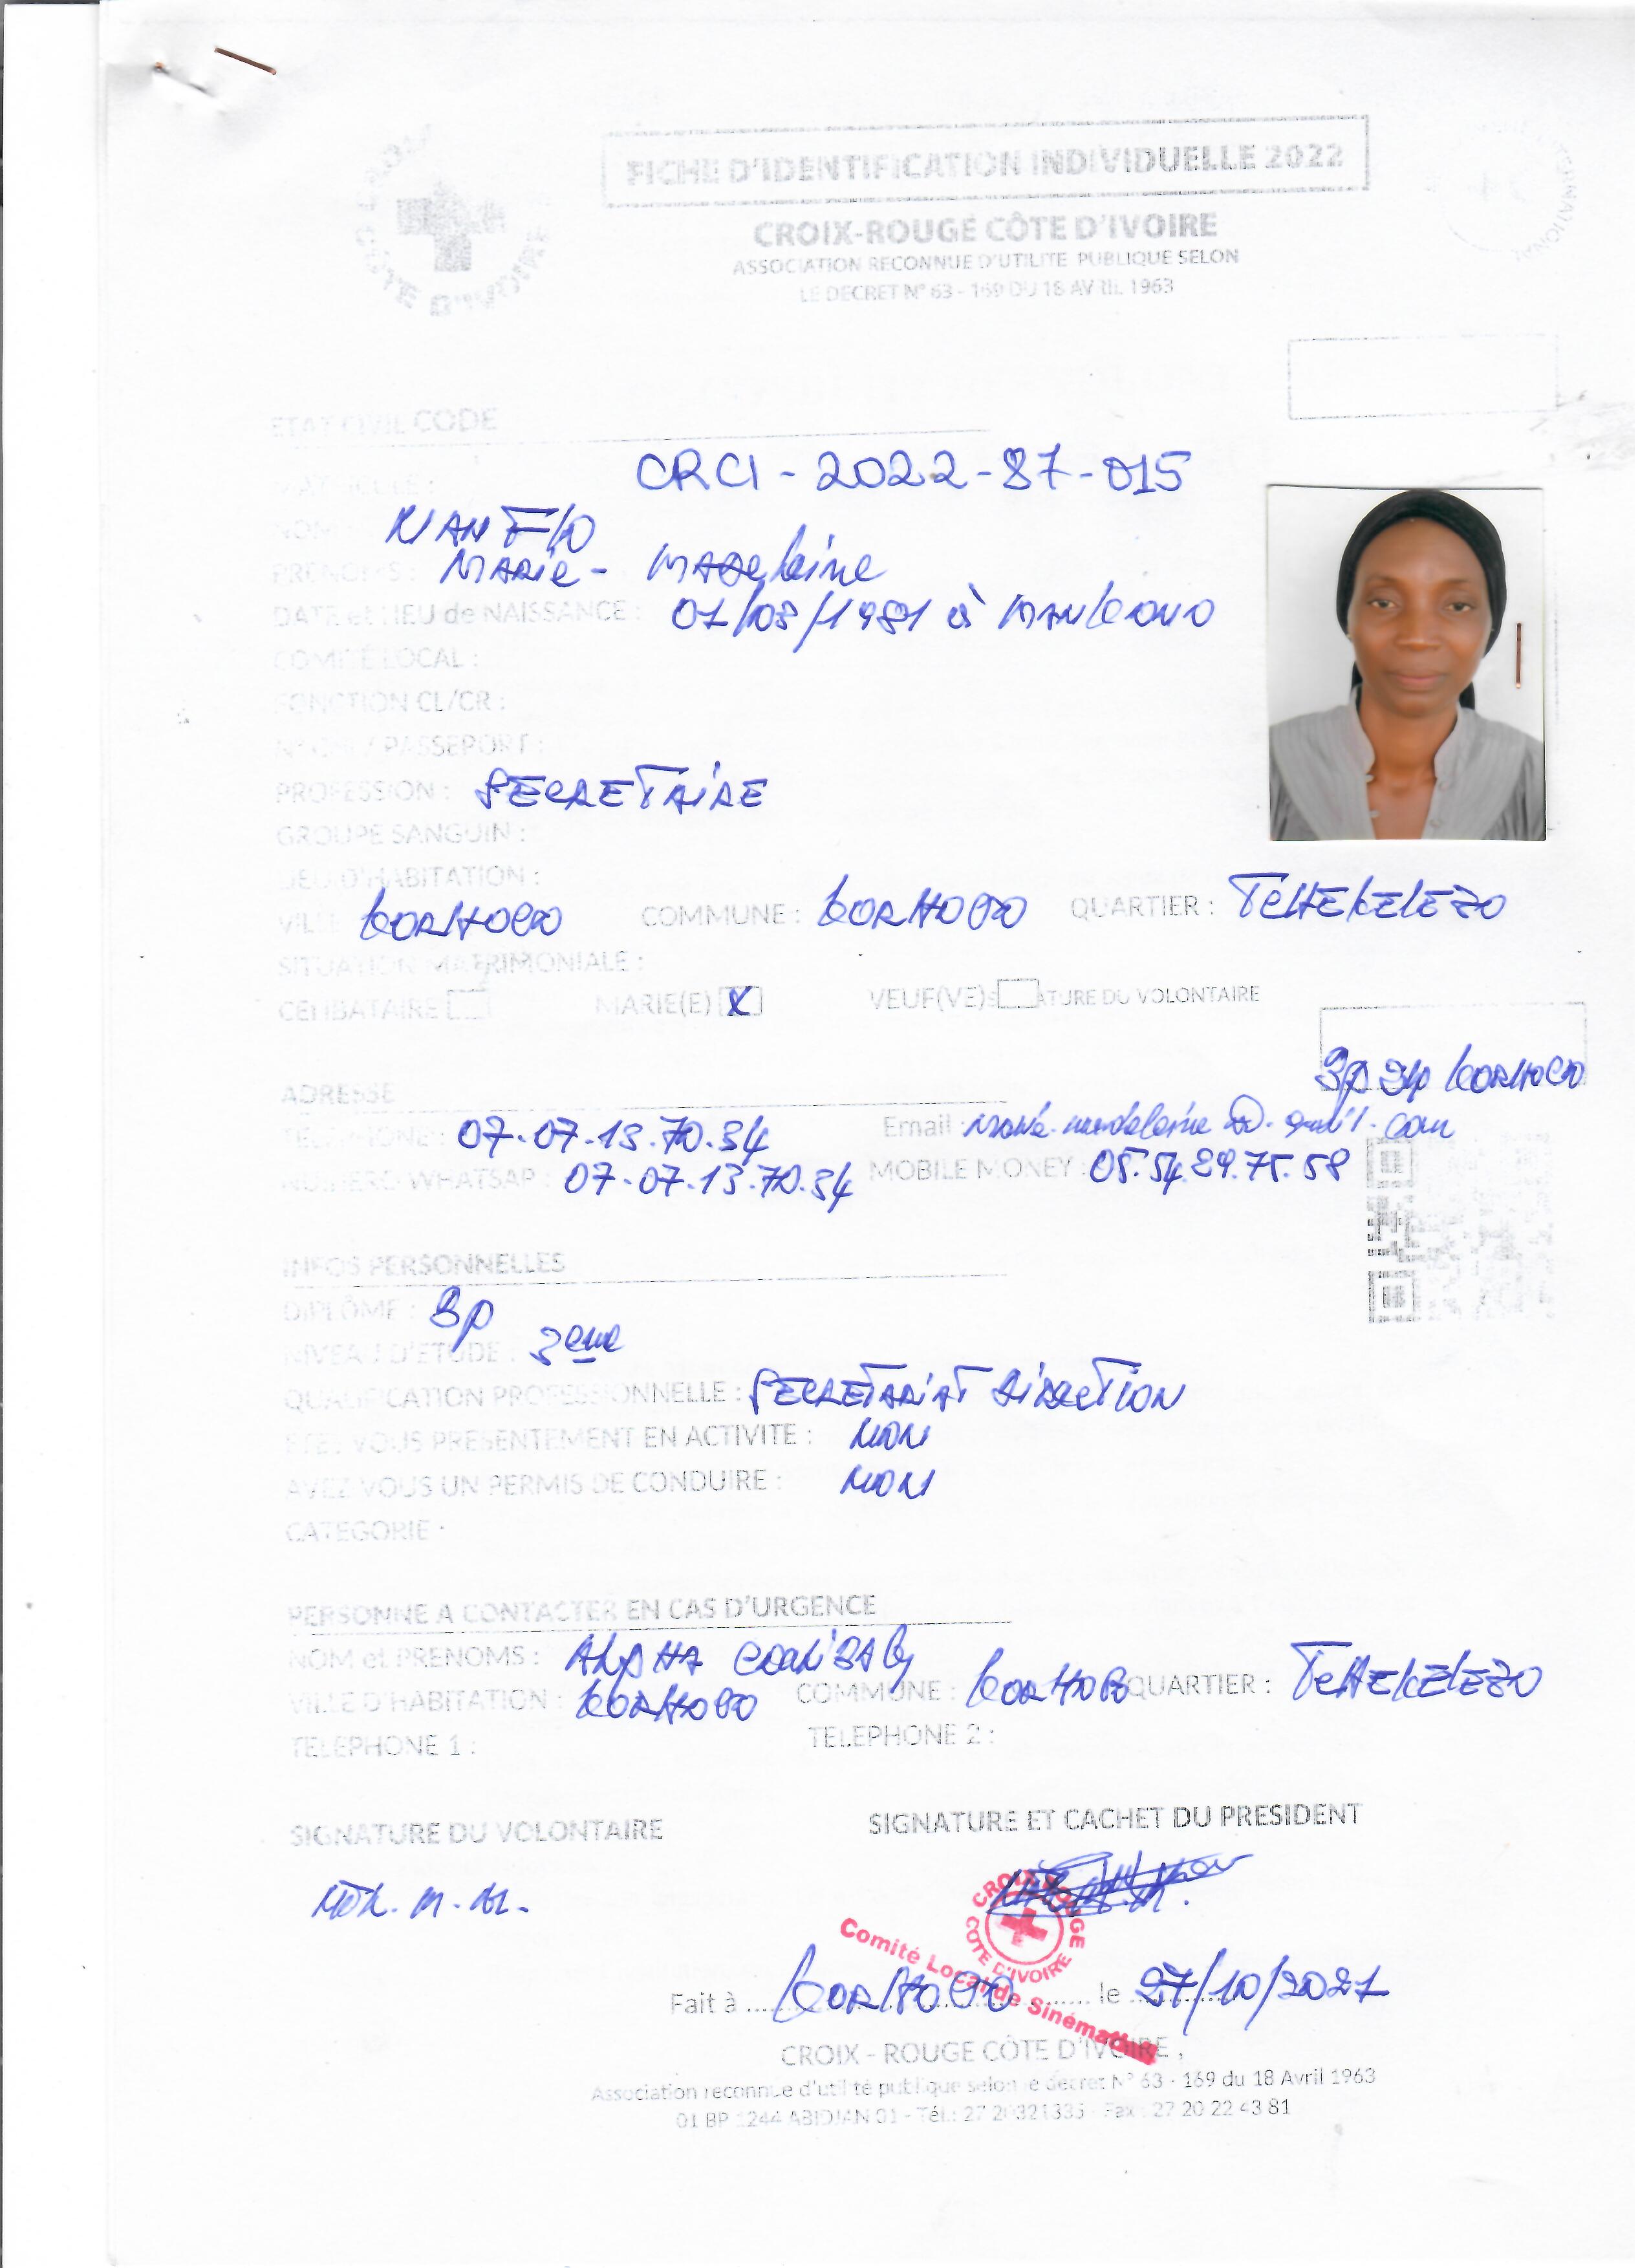 FICHE D'IDENTIFICATION INDIVIDUELLE 2022
CROIX-ROUGE CÔTE D'IVOIRE
ASSOCIATION RECONNUE D'UTILITE PUBLIQUE SELON
LE DECRET N° 63 - 169 DU 18 AVRIL 1963
ETAT CIVIL CODE
MATRICULE : CRCI - 2022 - 87 - 015
NOM
PRENOMS : MARIE - MADELEINE
DATE et LIEU de NAISSANCE : 01/03/1981 à MANKONO
COMITÉ LOCAL :
FONCTION CL/CR :
N° CNI / PASSEPORT :
PROFESSION : SECRETAIRE
GROUPE SANGUIN :
LIEU D'HABITATION :
VILLE KORHOGO COMMUNE : KORHOGO QUARTIER : TCHEKELEZO
SITUATION MATRIMONIALE :
CELIBATAIRE MARIE(E) X VEUF(VE) ATURE DU VOLONTAIRE
KORHOGO
ADRESSE
TELEPHONE : 07.07.13.70.34 Email :
NUMERO WHATSAP : 07.07.13.70.34 MOBILE MONEY : 05.54.89.75.58
INFOS PERSONNELLES
DIPLÔME : BP
NIVEAU D'ETUDE : 3eme
QUALIFICATION PROFESSIONNELLE : SECRETARIAT DIRECTION
ETES VOUS PRESENTEMENT EN ACTIVITE : NON
AVEZ VOUS UN PERMIS DE CONDUIRE : NON
CATEGORIE :
PERSONNE A CONTACTER EN CAS D'URGENCE
NOM et PRENOMS : ALPHA COULIBALY
VILLE D'HABITATION : KORHOGO COMMUNE : KORHOGO QUARTIER : TCHEKELEZO
TELEPHONE 1 : TELEPHONE 2 :
SIGNATURE DU VOLONTAIRE SIGNATURE ET CACHET DU PRESIDENT
CROIX ROUGE
CÔTE D'IVOIRE
Comité Local de
Fait à KORHOGO le 27/10/2021
CROIX - ROUGE CÔTE D'IVOIRE
Association reconnue d'utilité publique selon le decret N° 63 - 169 du 18 Avril 1963
01 BP 1244 ABIDJAN 01 - Tél.: 27 20321335 - Fax : 27 20 22 43 81